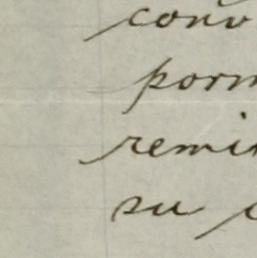 conv
porm
remi
su